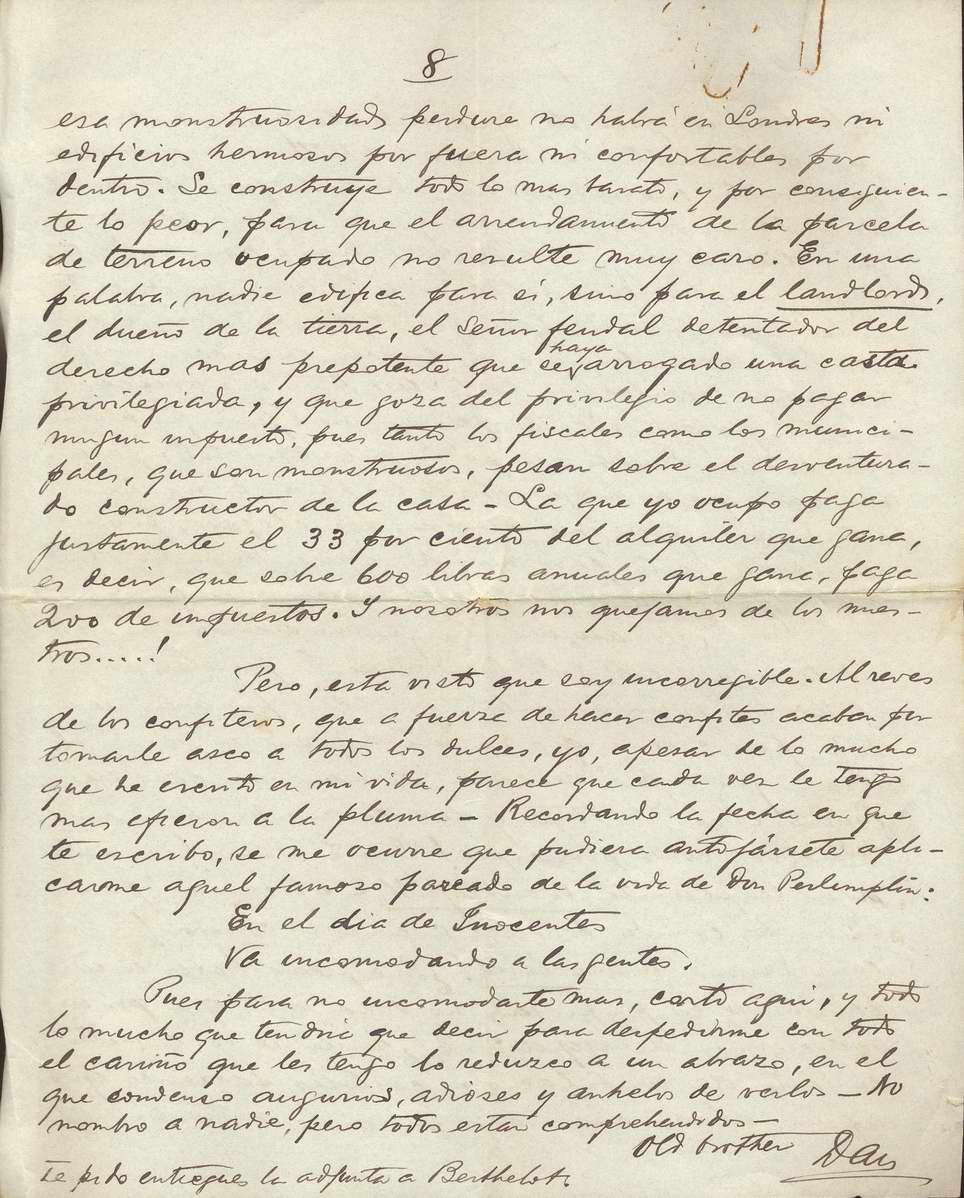 8
esa monstruosidad perdure no habrá en Londres ni
edificios hermosos por fuera ni confortables por
dentro. Se construye todo lo mas barato, y por consiguien-
te lo peor, para que el arrendamiento de la parcela
de terreno ocupado no resulte muy caro. En una
palabra, nadie edifica para sí, sino para el landlord,
el dueño de la tierra, el señor feudal detentador del
derecho mas prepotente que se haya arrogado una casta
privilegiada, y que goza del privilegio de no pagar
ningun impuesto, pues tanto los fiscales como los munici-
pales, que son monstruosos, pesan sobre el desventura-
do constructor de la casa - La que yo ocupo paga
justamente el 33 por ciento del alquiler que gana,
es decir, que sobre 600 libras anuales que gana, paga
200 de impuestos. I nosotros nos quejamos de los nues-
tros.....!
Pero, esta visto que soy incorregible. Al reves
de los confiteros, que a fuerza de hacer confites acaban por
tomarle asco a todos los dulces, yo, apesar de lo mucho
que he escrito en mi vida, parece que cada vez le tengo
mas aficion a la pluma - Recordando la fecha en que
te escribo, se me ocurre que pudiera antojársete apli-
carme aquel famoso pareado de la vida de Don Perlimplin:
En el dia de Inocentes
Va incomodando a las gentes.
Pues para no incomodarte mas, corto aqui, y todo
lo mucho que tendria que decir para despedirme con todo
el cariño que les tengo lo reduzco a un abrazo, en el
que condenso augurios, adioses y anhelos de verlos - No
nombro a nadie, pero todos estan comprehendidos -
Old brother Dan
Te pido entregues la adjunta a Berthelot.